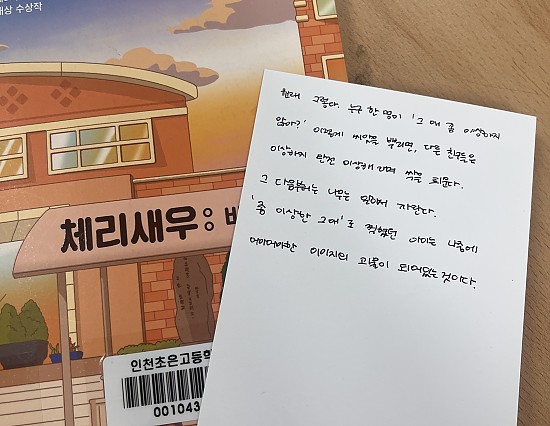 대상 수상작
체리새우: 비
인천초은고등학
001043
원래 그렇다. 누구 한 명이 '그 애 좀 이상하지
않아?' 이렇게 씨앗을 뿌리면, 다른 친구들은
이상하지 완전 이상해 라며 싹을 틔운다.
그 다음부터는 나무는 알아서 자란다.
'좀 이상한 그 애'로 찍혔던 아이는 나중에
어마어마한 이미지의 괴물이 되어있는것이다.